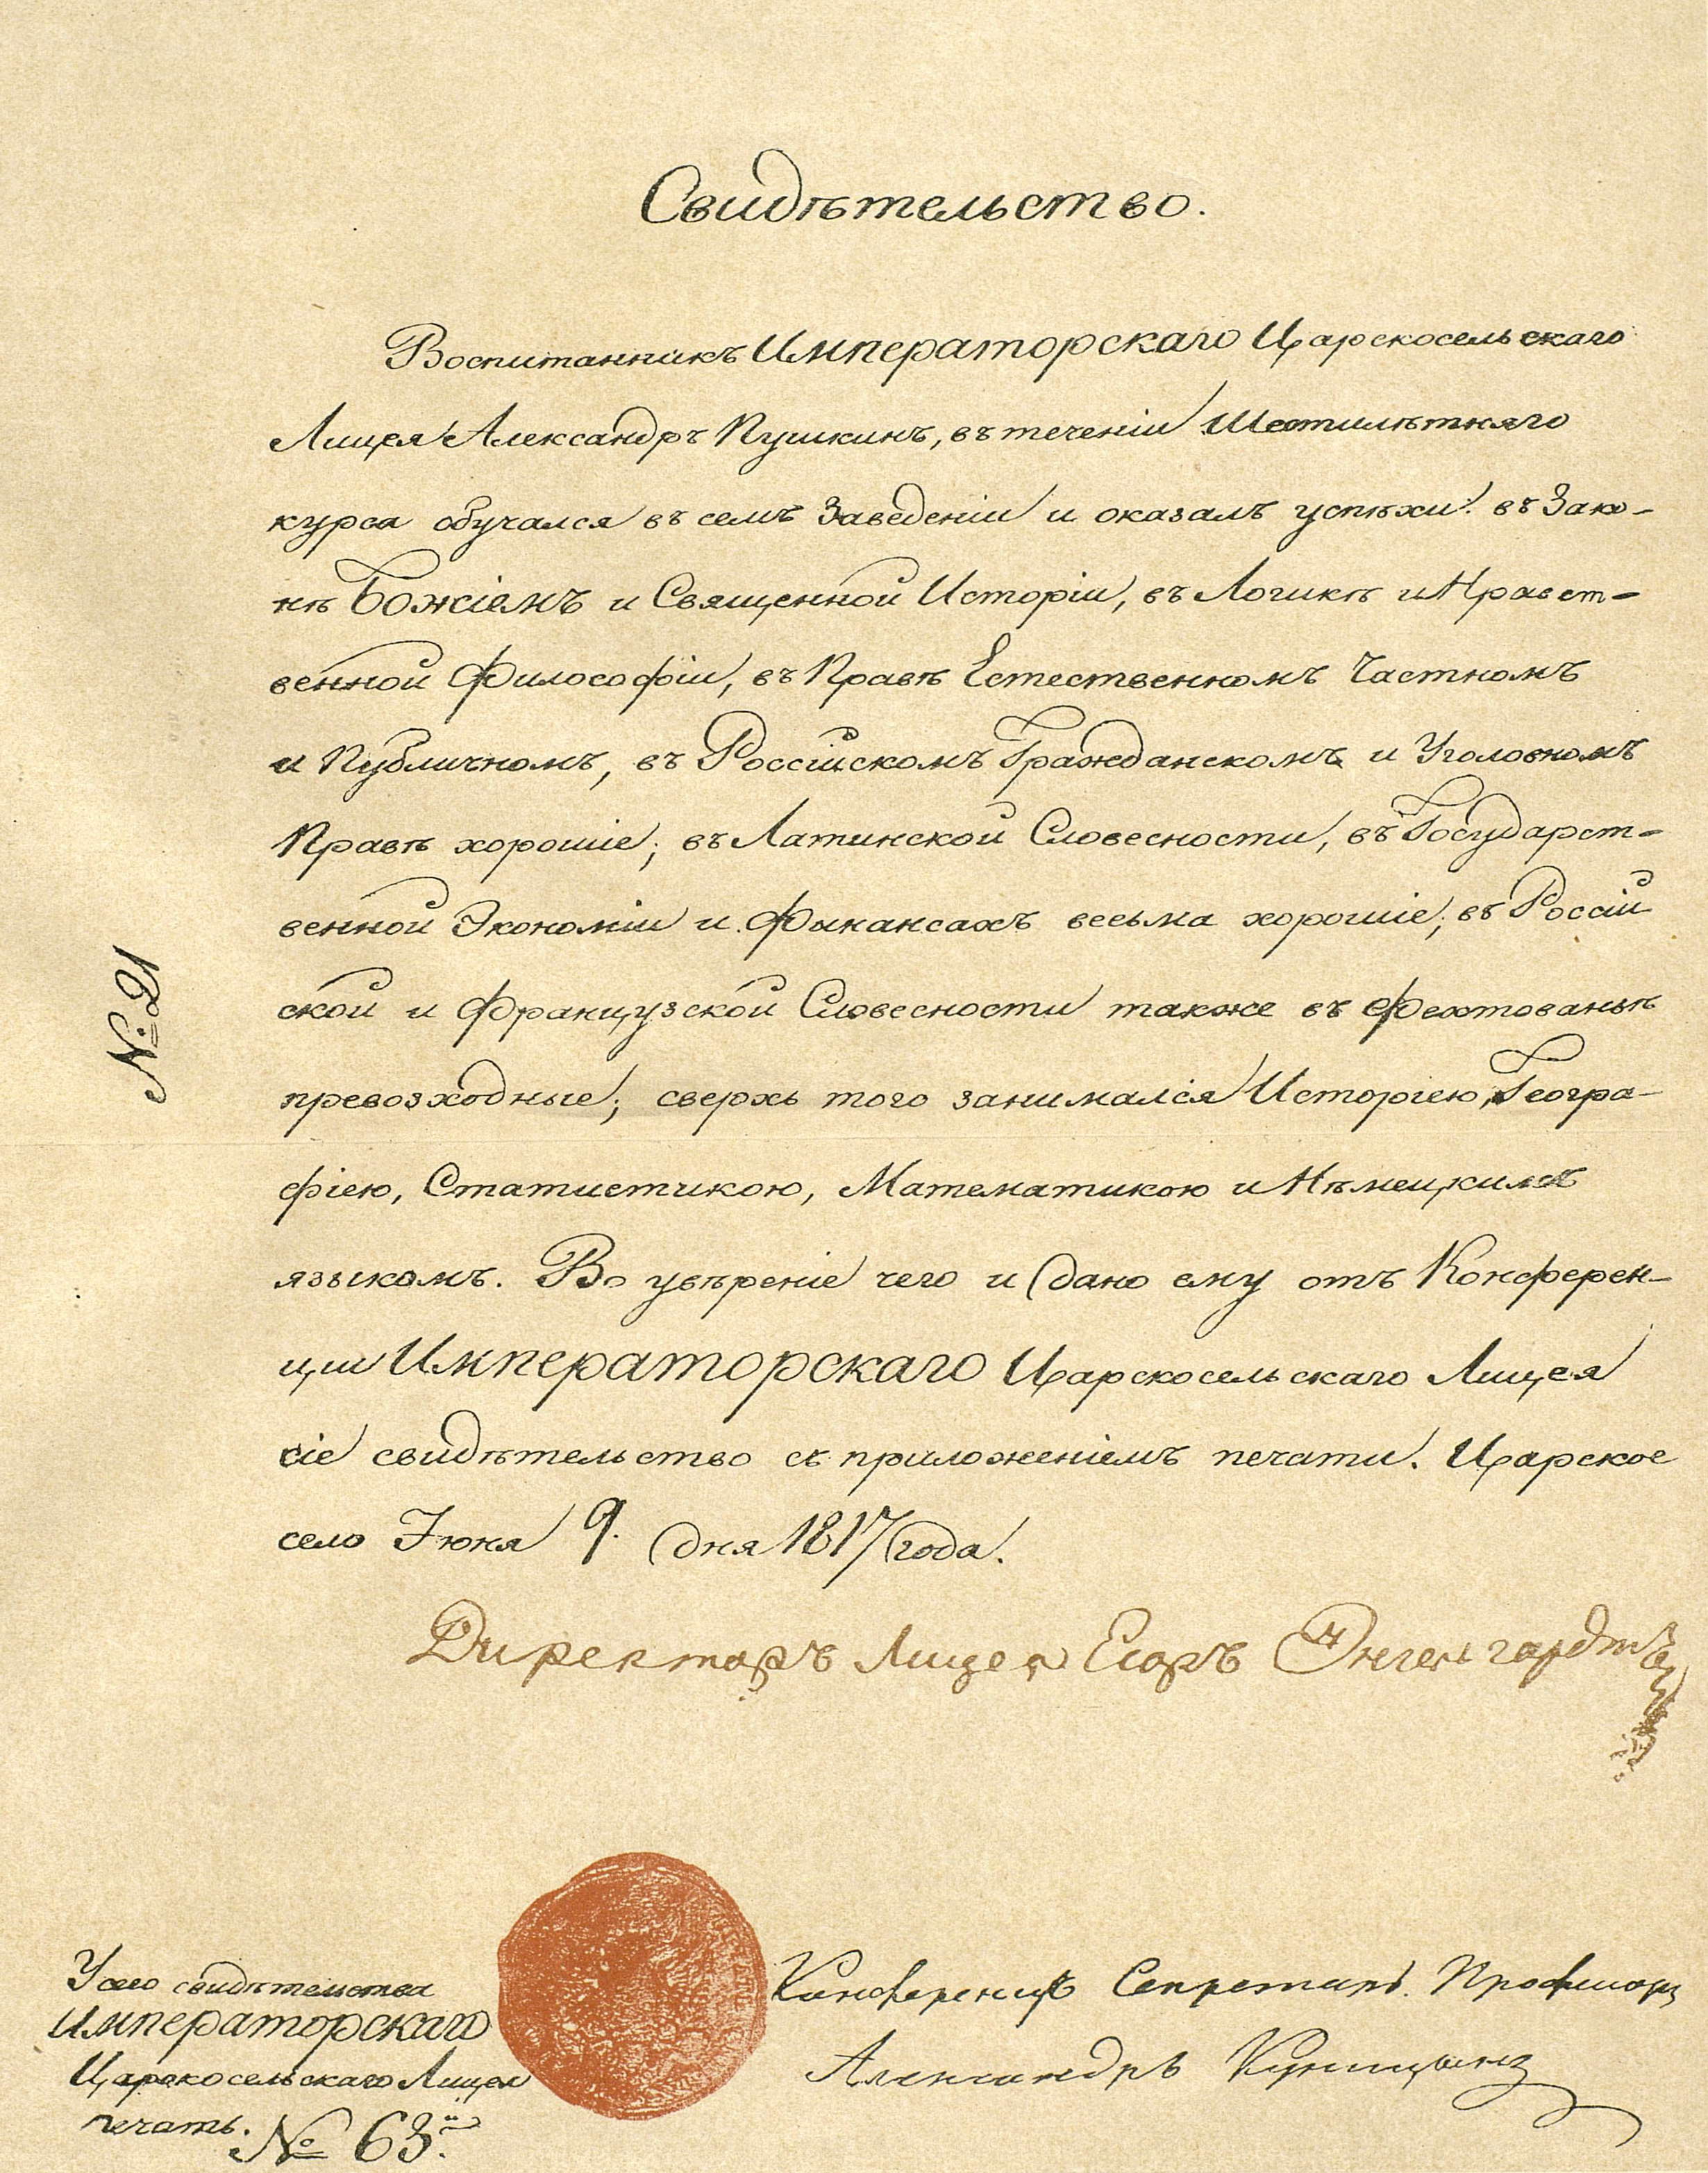 Свидѣтельство.
Воспитанникъ Императорскаго Царскосельскаго
Лицея Александръ Пушкинъ, въ теченіи Шестилѣтняго
курса обучался въ семъ Заведеніи и оказалъ успѣхи: въ Зако-
нѣ Божіемъ и Священной Исторіи, въ Логикѣ и Нравст-
венной Философіи, въ Правѣ Естественномъ Частномъ
и Публичномъ, въ Россійскомъ Гражданскомъ и Уголовномъ
Правѣ хорошіе; въ Латинской Словесности, въ Государст-
венной Экономіи и Финансахъ весьма хорошіе; въ Россій
ской и Французской Словесности также въ Фехтованьѣ
превозходные; сверхъ того занимался Исторіею, Геогра-
фіею, Статистикою, Математикою и Нѣмецкимъ
языкомъ. Во увѣреніе чего и дано ему отъ Конферен-
ціи Императорскаго Царскосельскаго Лицея
сіе свидѣтельство съ приложеніемъ печати. Царское
село Іюня 9. дня 1817 года.
Директоръ Лицея Егоръ Энгельгардтъ
№ 21
Конференцъ Секретарь. Профессоръ
Александръ Куницынъ
У сего свидѣтельства
Императорскаго
Царскосельскаго Лицея
печать.
№ 63.